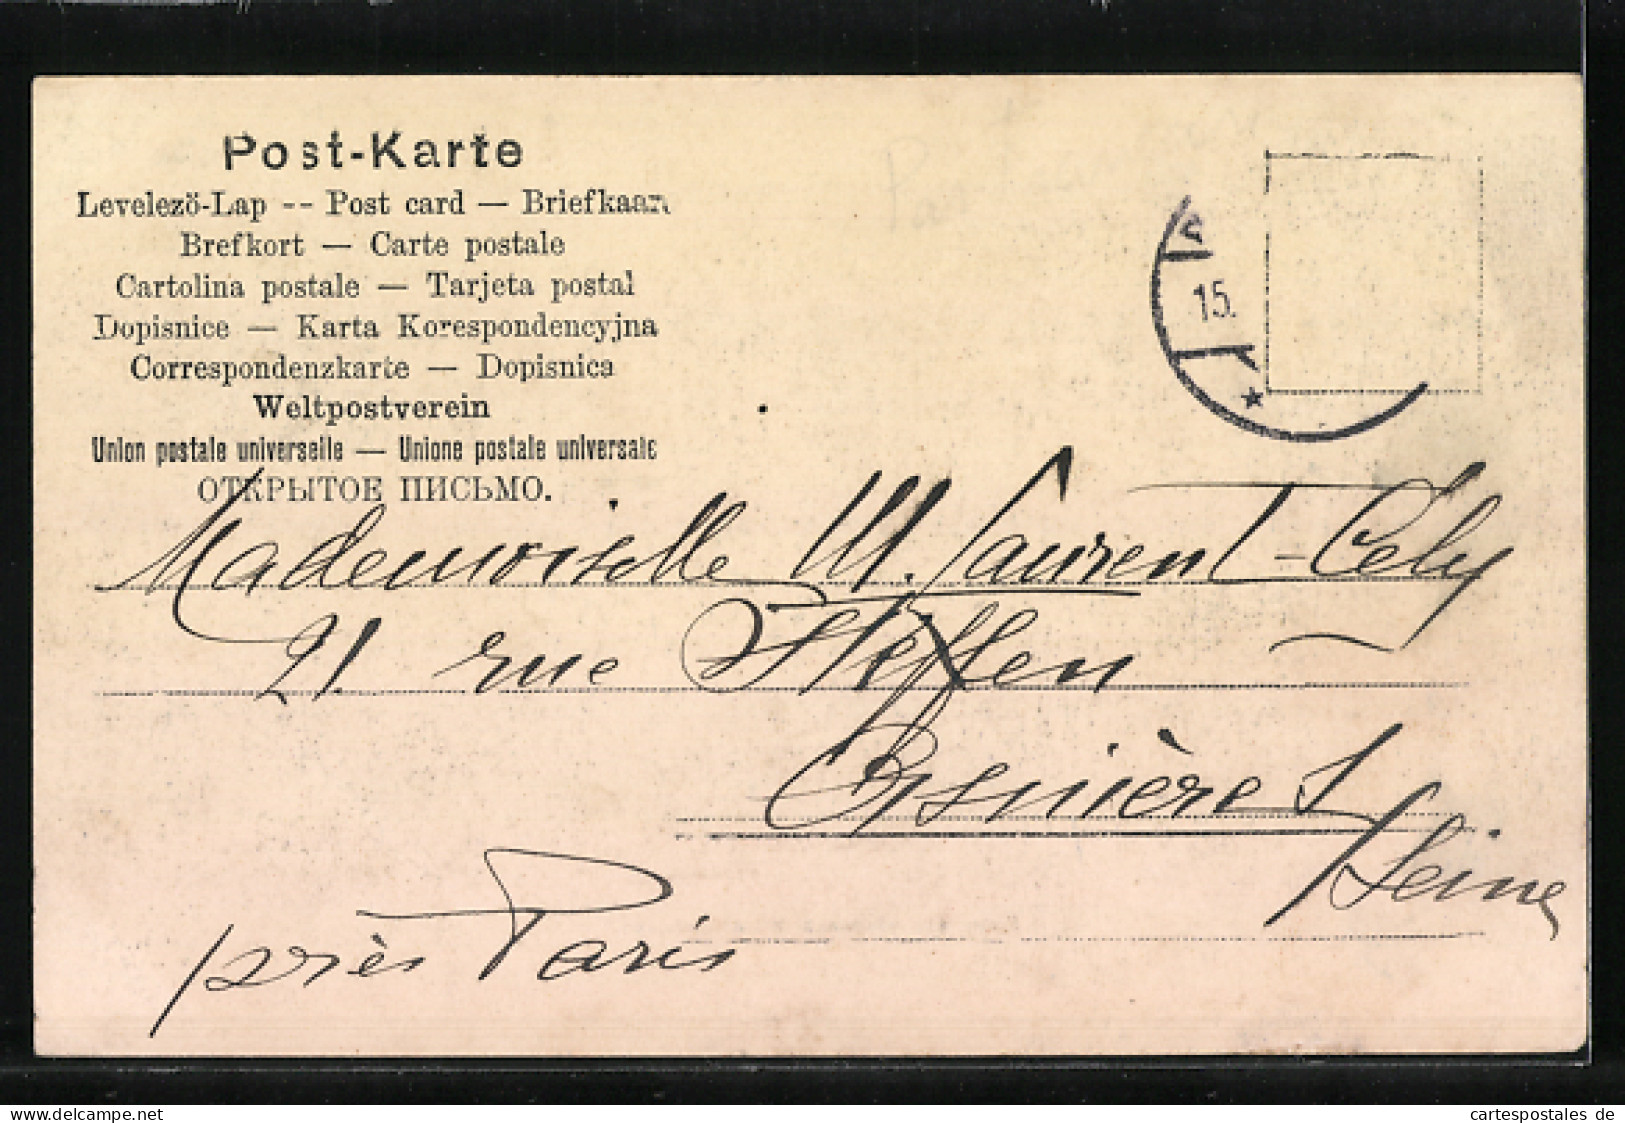 Post-Karte
Levelezö-Lap -- Post card — Briefkaart
Brefkort — Carte postale
Cartolina postale — Tarjeta postal
Dopisnice — Karta Korespondencyjna
Correspondenzkarte — Dopisnica
Weltpostverein
Union postale universelle — Unione postale universale
ОТКРЫТОЕ ПИСЬМО.
15.
Mademoiselle M. Laurent-Cely
21. rue Steffen
Asnières
s/Seine
près Paris
cartespostales de